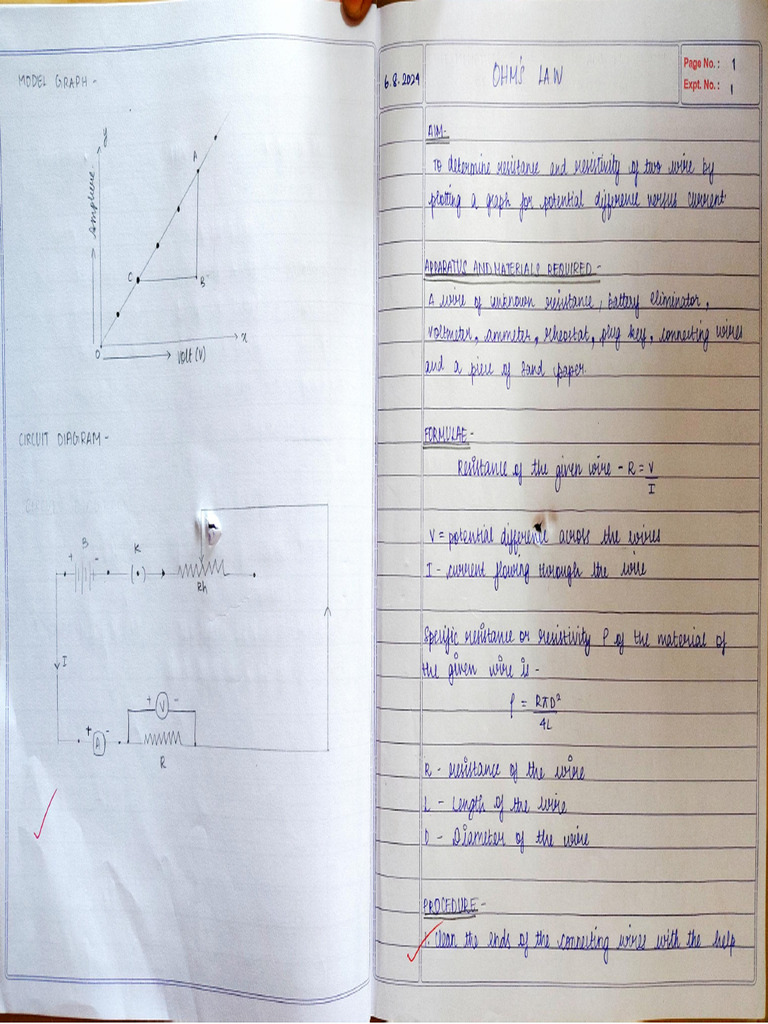 MODEL GRAPH -
y
Amphere
A
C
B
O
x
Volt (V)
CIRCUIT DIAGRAM -
+ B -
K
( • )
Rh
I
+ V -
+ A -
R
6.8.2024
OHM'S LAW
Page No.: 1
Expt. No.: 1
AIM-
To determine resistance and resistivity of two wire by
ploting a graph for potential difference versus current.
APPARATUS AND MATERIALS REQUIRED -
A wire of unknown resistance, Battery eliminator,
voltmeter, ammeter, rheostat, plug key, connecting wires
and a piece of sand paper.
FORMULAE -
Resistance of the given wire - R = V/I
V = potential difference across the wires
I - current flowing through the wire
Specific resistance or resistivity ρ of the material of
the given wire is -
ρ = RπD²/4L
R - resistance of the wire
L - Length of the wire
D - Diameter of the wire
PROCEDURE -
1. Clean the ends of the connecting wires with the help